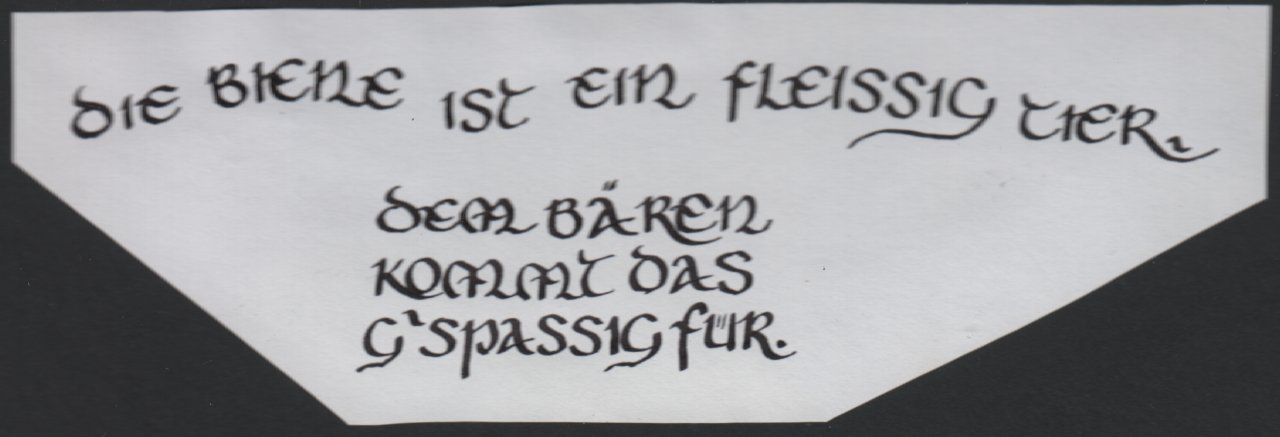 DIE BIENE IST EIN FLEISSIG TIER.
DEM BÄREN
KOMMT DAS
G'SPASSIG FÜR.